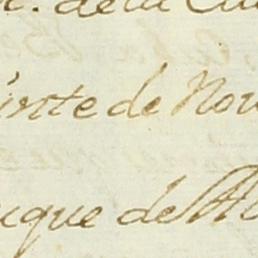 de la
inte de Nov
uque de Al